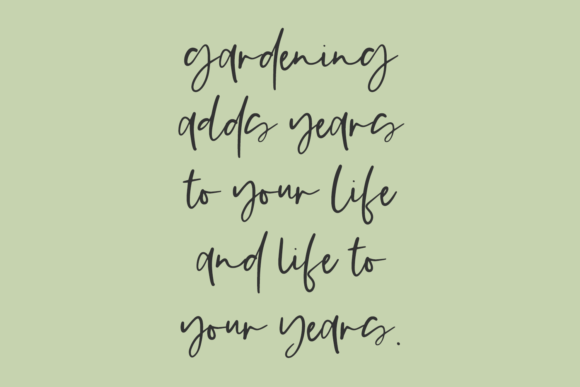 gardening
adds years
to your life
and life to
your years.